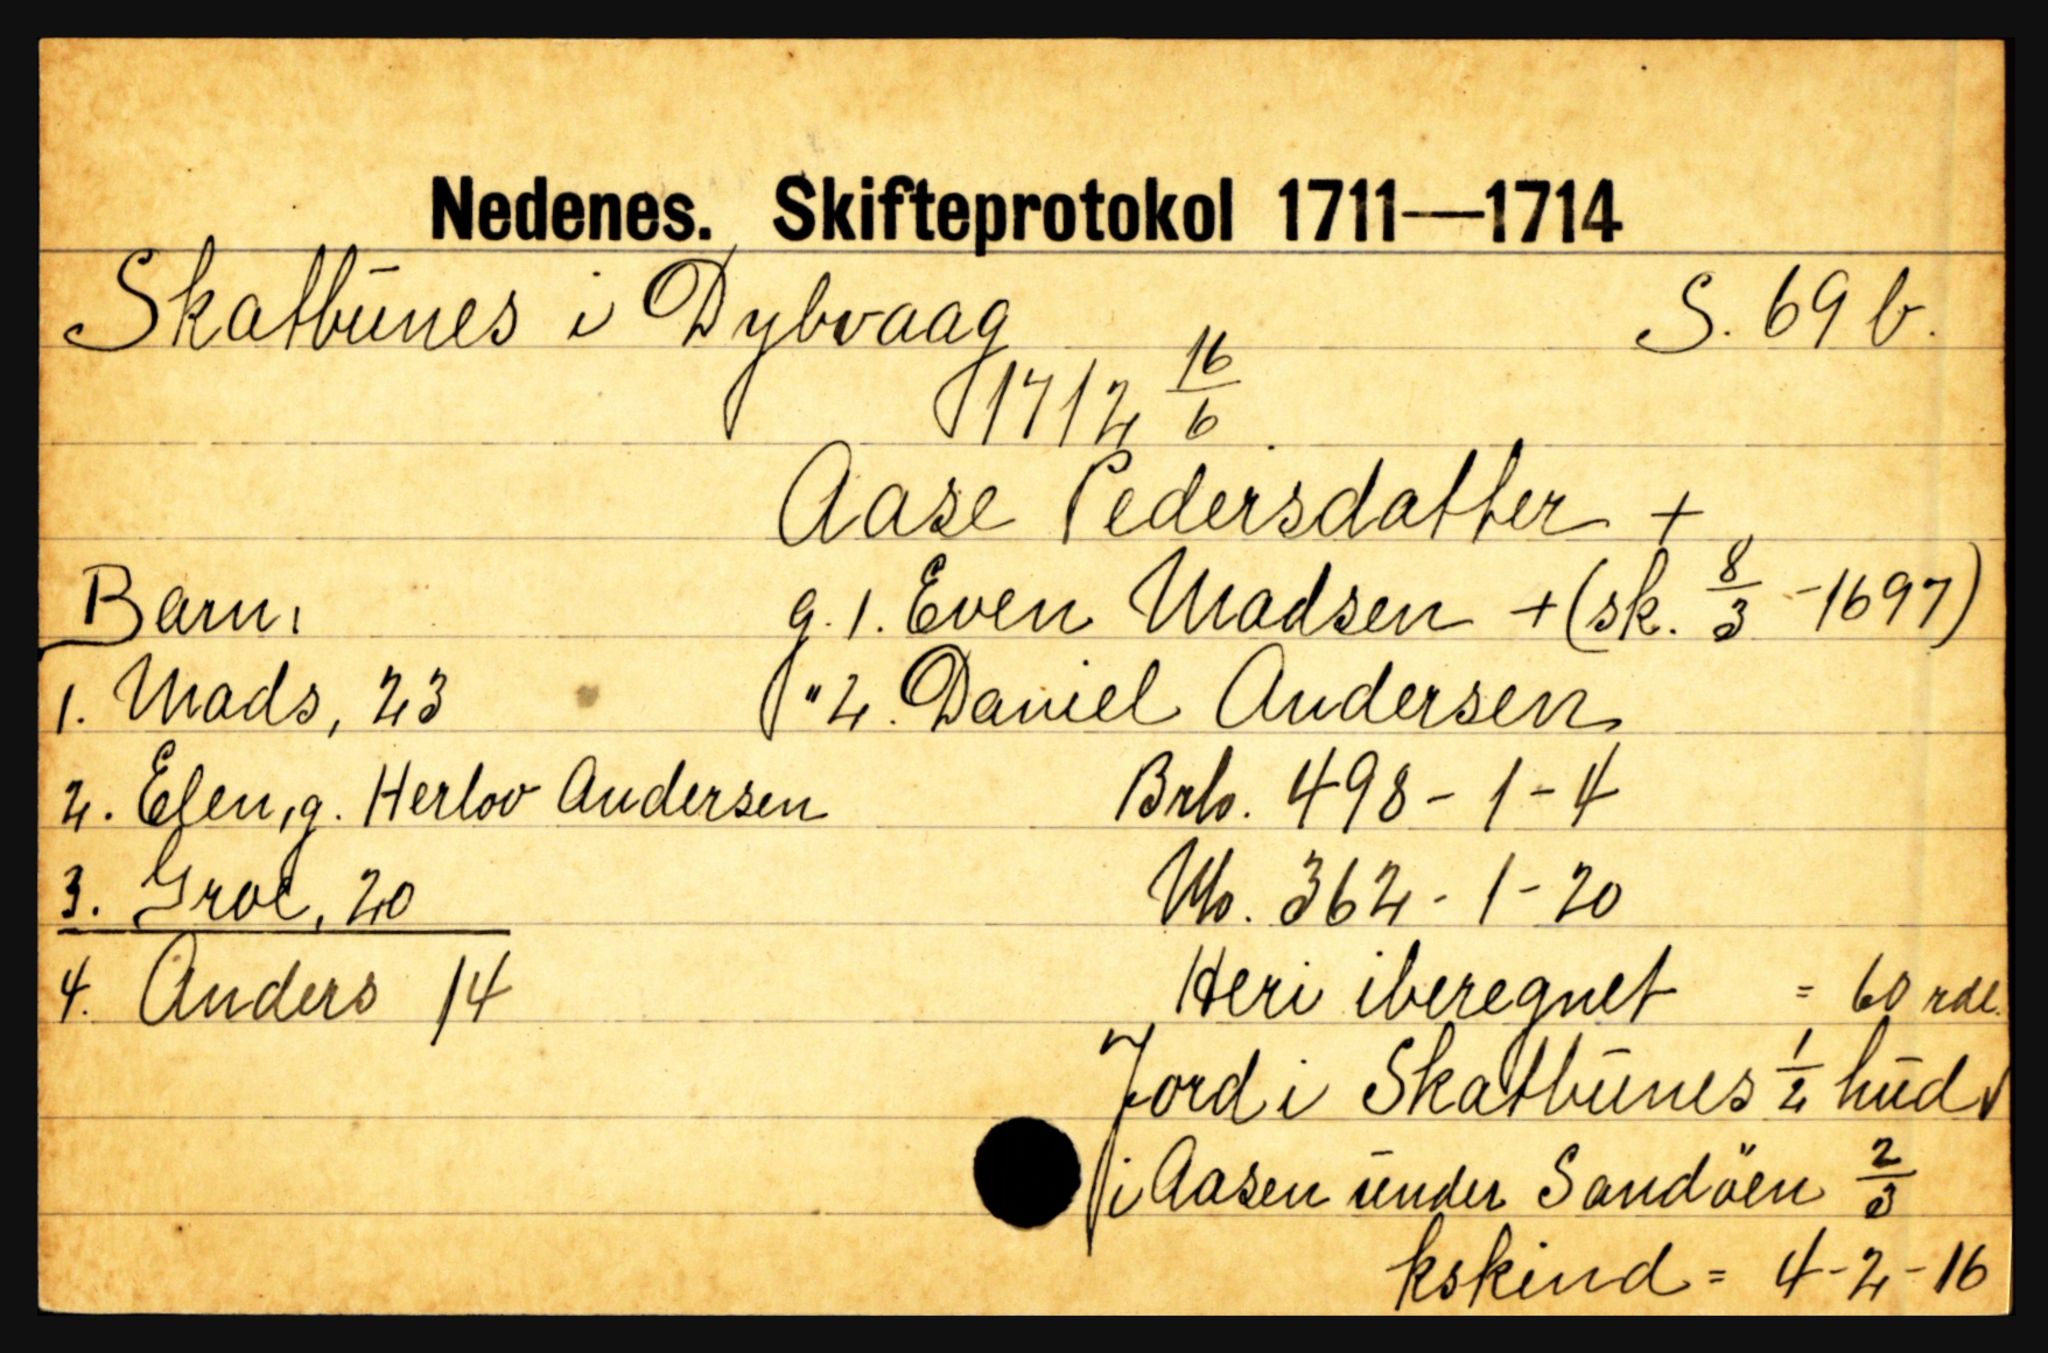 Nedenes. Skifteprotokol 1711—1714
Skatbūnes i Dybvaag S. 69 b.
1712 16/6
Aase Pedersdatter +
Barn: g. 1. Even Madsen + (sk. 8/3 - 1697)
1. Mads, 23 " 2. Daniel Andersen
2. Elen, g. Herlov Andersen Brb. 498 - 1 - 4
3. Groe, 20 Nb. 362 - 1 - 20
4. Anders 14 Heri iberegnet = 60 rdl.
Jord i Skatbūnes 1/2 hūd
i Aasen ūnder Sandöen 2/3
kskind = 4 - 2 - 16